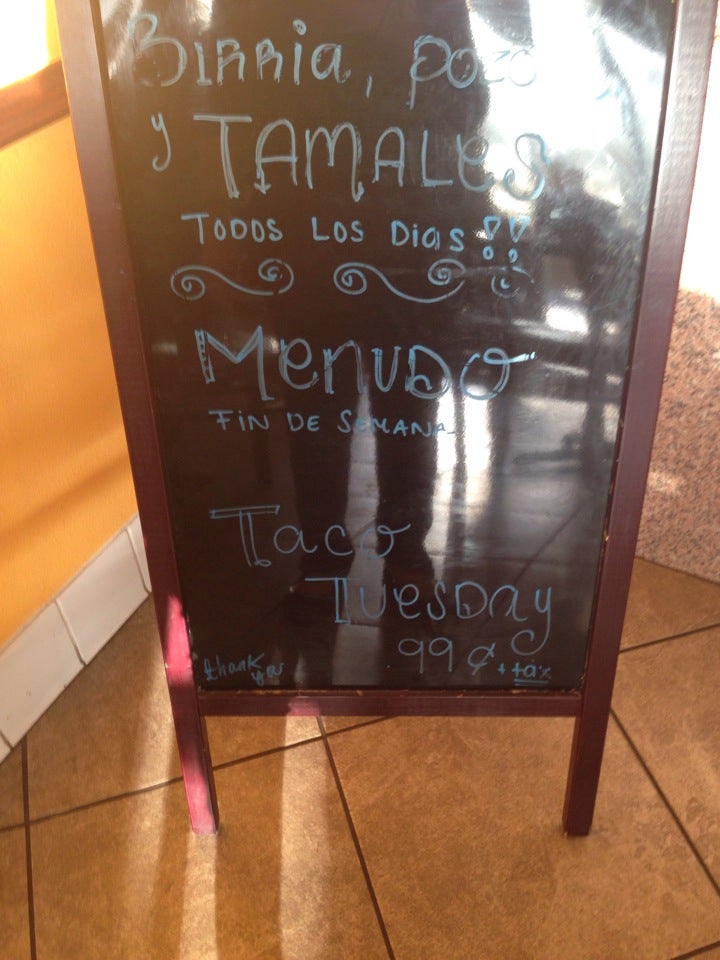 Birria, pozo
y TAMALES
TODOS LOS DiaS !!
MenuDO
FiN DE SEMANA
Taco
TuesDay
99¢ + tax
thank you